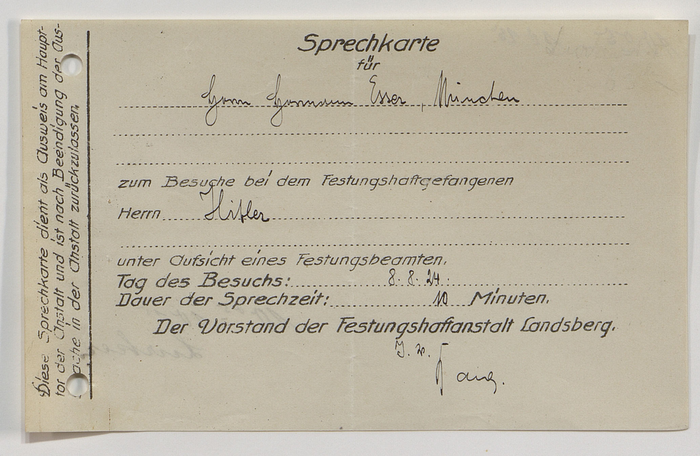 Sprechkarte
für
Herrn Hermann Esser, München
zum Besuche bei dem Festungshaftgefangenen
Herrn Hitler
unter Aufsicht eines Festungsbeamten.
Tag des Besuchs: 8.8.24.
Dauer der Sprechzeit: 10 Minuten.
Der Vorstand der Festungshaftanstalt Landsberg.
J. V.
Diese Sprechkarte dient als Ausweis am Haupt-
tor der Anstalt und ist nach Beendigung der Aus-
sprache in der Anstalt zurückzulassen.